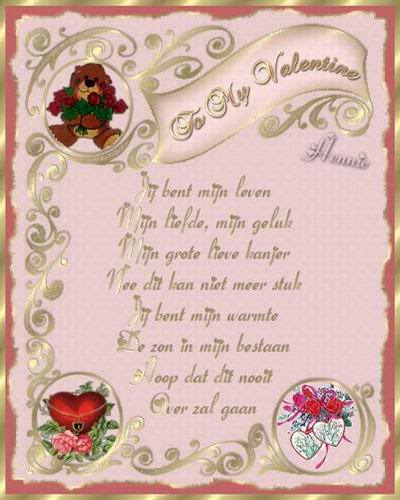 To My Valentine
Hennie
Jij bent mijn leven
Mijn liefde, mijn geluk
Mijn grote lieve kanjer
Nee dit kan niet meer stuk
Jij bent mijn warmte
De zon in mijn bestaan
Hoop dat dit nooit
Over zal gaan